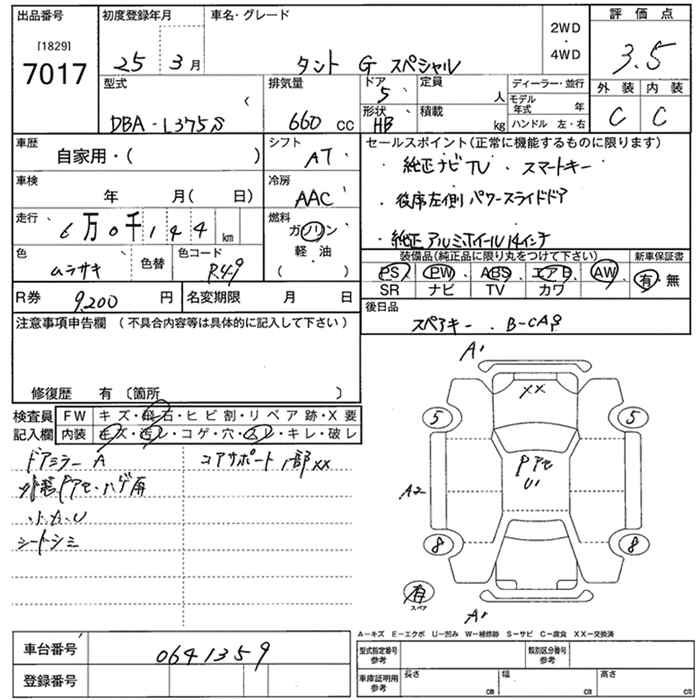 出品番号 初度登録年月 車名・グレード 評価点
[1829]
7017
25 3月 タント G スペシャル
2WD
・
4WD
3.5
外装 内装
C C
型式 排気量 ドア 定員 ディーラー・並行
DBA-L375S 660 CC 5 人 モデル年式 年
形状 積載
HB kg ハンドル 左・右
車歴 シフト セールスポイント(正常に機能するものに限ります)
自家用・( ) AT ・純正ナビTV ・スマートキー
車検 冷房
年 月( 日) AAC ・後席左側パワースライドドア
走行 燃料
6万0千144km ガソリン ・純正アルミホイール14インチ
軽・油
( )
色 色替 色コード
ムラサキ R49
装備品(純正品に限り丸をつけて下さい) 新車保証書
PS PW ABS エアB AW 有・無
SR ナビ TV カワ
R券 9,200 円 名変期限 月 日
後日品
スペアキー、B-CAP
注意事項申告欄 (不具合内容等は具体的に記入して下さい)
修復歴 有〔箇所 〕
検査員 FW キズ・飛石・ヒビ割・リペア跡・X要
記入欄 内装 キズ・汚レ・コゲ・穴・スレ・キレ・破レ
ドアミラーA コアサポート 1部XX
小キズ・U
シートシミ
A1
XX
5 5
Pアセ
U1
A2
8 8
有
スペア
A1
A-キズ E-エクボ U-凹み W-補修跡 S-サビ C-腐食 XX-交換済
車台番号 0641359
登録番号
型式指定番号 参考 類別区分番号 参考
車庫証明用 参考 長さ cm 幅 cm 高さ cm